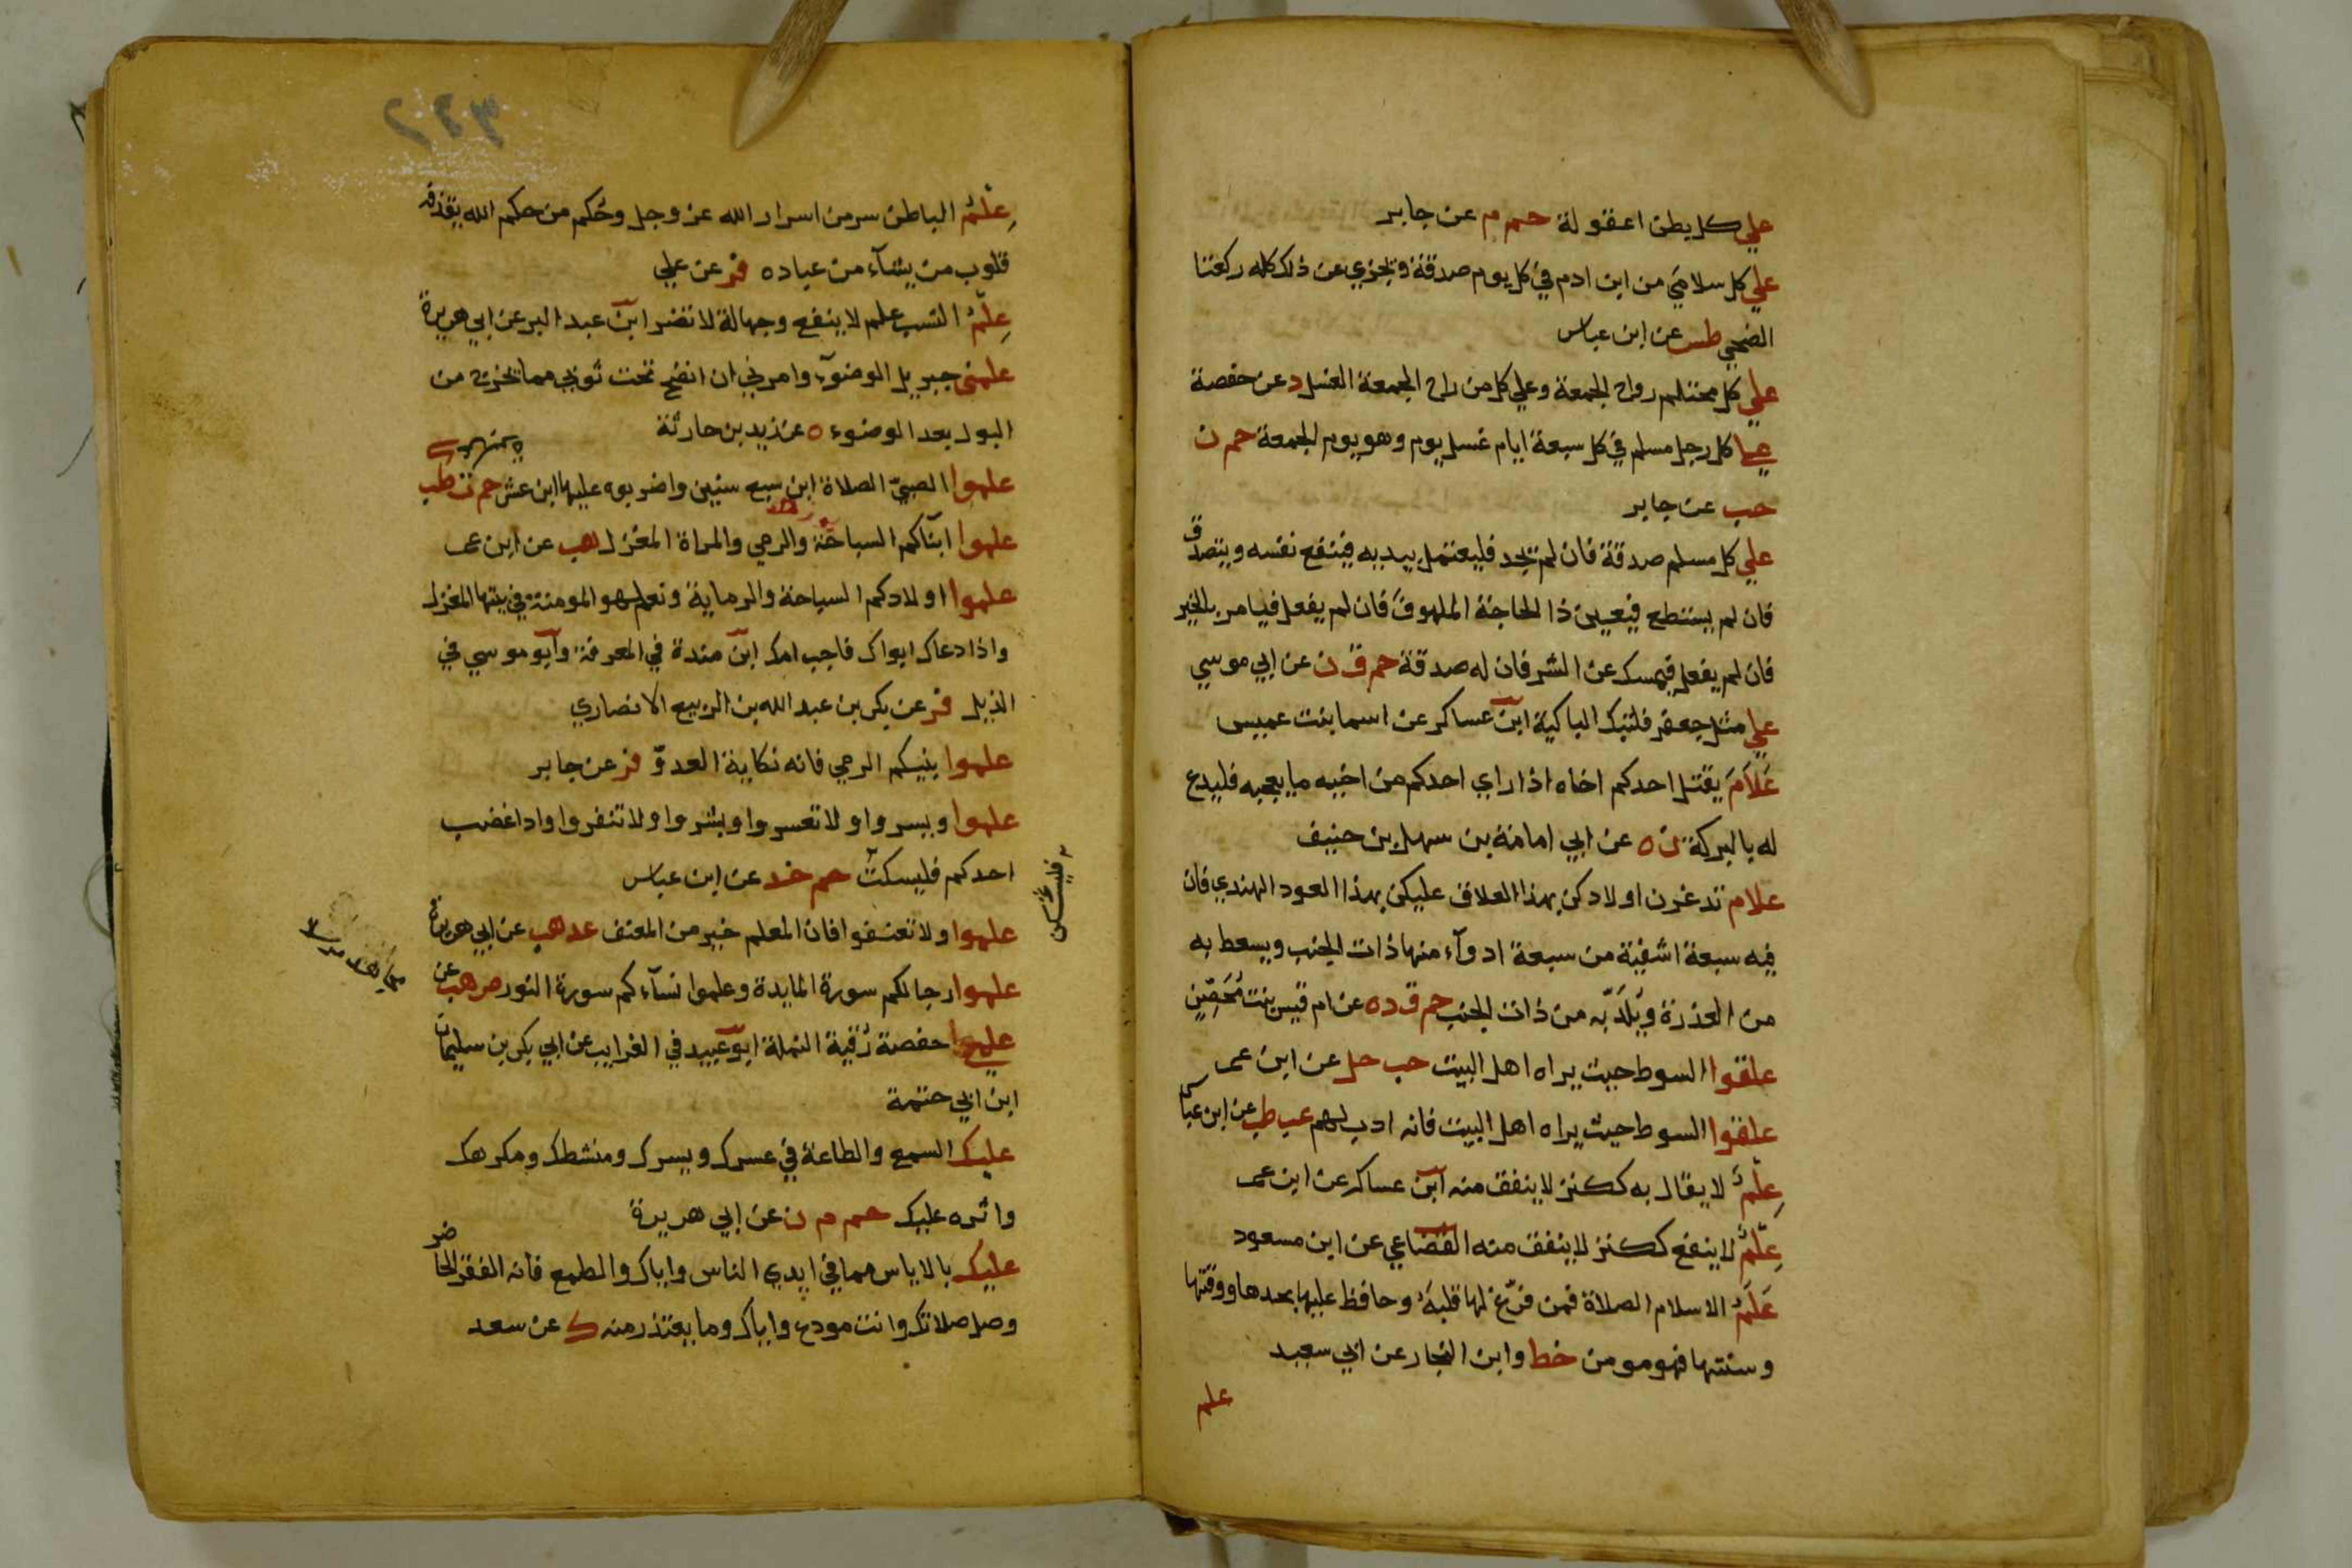 علي كل بطن اعقولة حم م عن جابر
علي كل سلامي من ابن ادم في كل يوم صدقة ويجزي عن ذلك كله ركعتا
الضحي طس عن ابن عباس
علي كل محتلم رواح الجمعة وعلي كل من راح الجمعة الغسل د عن حفصة
علي كل رجل مسلم في كل سبعة ايام غسل يوم وهو يوم الجمعة حم ن
حب عن جابر
علي كل مسلم صدقة فان لم يجد فليعتمل بيديه فينفع نفسه ويتصدق
فان لم يستطع فيعين ذا الحاجة الملهوف فان لم يفعل فيامر بالخير
فان لم يفعل فيمسك عن الشر فان له صدقة حم ق ن عن ابي موسي
علي مثل جعفر فلتبك الباكية ابن عساكر عن اسما بنت عميس
عَلاَمَ يقتل احدكم اخاه اذا راي احدكم من اخيه ما يعجبه فليدع
له بالبركة ن ه عن ابي امامة بن سهل بن حنيف
علام تدغرن اولادكن بهذا العلاق عليكن بهذا العود الهندي فان
فيه سبعة اشفية من سبعة ادوآء منها ذات الجنب ويسعط به
من العذرة ويُلَدّ به من ذات الجنب حم ق د ه عن ام قيس بنت مُحَصِّنٍ
علقوا السوط حيث يراه اهل البيت حب حل عن ابن عمر
علقوا السوط حيث يراه اهل البيت فانه ادب لهم عب طب عن ابن عباس
عِلْمٌ لا يقال به ككنز لا ينفق منه ابن عساكر عن ابن عمر
عِلْمٌ لا ينفع ككنز لا ينفق منه القضاعي عن ابن مسعود
عَلَمُ الاسلام الصلاة فمن فرّغ لها قلبَهُ وحافظ عليها بحدها ووقتها
وسنتها فهو مومن خط وابن النجار عن ابي سعيد
علم
عِلْمُ الباطن سر من اسرار الله عز وجل وحُكم من حكم الله يقذفه
قلوب من يشآء من عباده فر عن علي
عِلْمُ النسب علم لا ينفع وجهالة لا تضر ابن عبد البر عن ابي هريرة
علمني جبريل الوضوٓء وامرني ان انضح تحت ثوبي مما يخرج من
البول بعد الوضوء ه عن زيد بن حارثة
علموا الصبيّ الصلاة ابن سبع سنين واضربوه عليها ابن عشر حم ت طب
علموا ابنآكم السباحة والرمي والمراة المغزل هب عن ابن عمر
علموا اولادكم السباحة والرماية ونعم لهو المومنة في بيتها المغزل
واذا دعاك ابواك فاجب امك ابن مندة في المعرفة وابو موسي في
الذيل فر عن بكر بن عبد الله بن الربيع الانصاري
علموا بنيكم الرمي فانه نكاية العدوّ فر عن جابر
علموا ويسروا ولا تعسروا وبشروا ولا تنفروا واذا غضب
احدكم فليسكت حم خد عن ابن عباس
فليسكن
علموا ولا تعنفوا فان المعلم خير من المعنف عد هب عن ابي هريرة
علموا رجالكم سورة المايدة وعلموا نسآءكم سورة النور ص هب عن
علموا حفصة رُقية النملة ابو عبيد في الغرايب عن ابي بكر بن سليمان
ابن ابي حتمة
عليك السمع والطاعة في عسرك ويسرك ومنشطك ومكرهك
واثره عليك حم م ن عن ابي هريرة
عليك بالاياس مما في ايدي الناس واياك والطمع فانه الفقر الحاضر
وصل صلاتك وانت مودع واياك وما يعتذر منه ك عن سعد